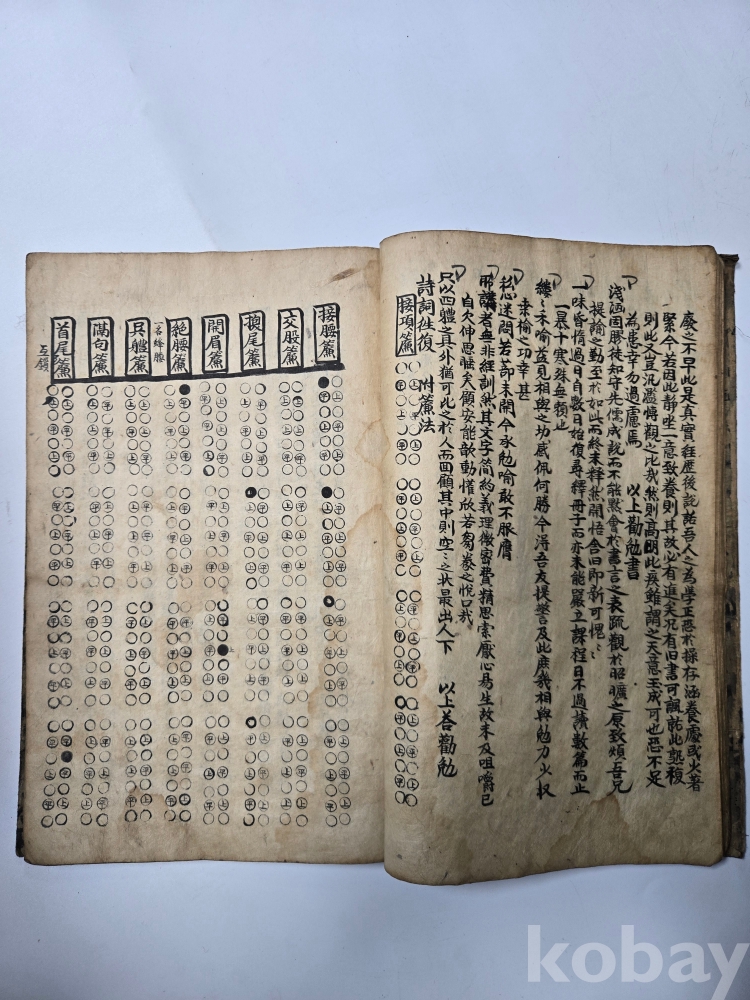 廢之不早此是眞實經歷後說話吾人之為學正患於操存涵養處或欠着
緊今若因此靜坐一意致養則其故必有進矣凡有旧書可誦訪此塾複
則此大豈汎濫博觀之比哉然則高明此疾雖謂之天意玉成可也恐不足
為患幸勿過慮焉 以上勸勉書
淺涵固膠徒知守先儒成說而不能默會於書言之表疏觀於昭曠之原致煩吾兄
提諭之勤至於如此而終未釋然開悟舍旧卽新可愧〻
一味昏惰過日自數日始復尋繹冊子而亦未能嚴立課程日不過讀數篇而止
一暴十寒殊無賴也
纏〻示喻益見相與之功感佩何勝今得吾友提警及此庶幾相與勉力火收
桑榆之功幸甚
私心迷悶若茅未開今承勉喻敢不服膺
所讀者無非經訓然其文字簡約義理微密費精思索厭心易生故未及咀嚼已
自欠伸思睡矣顧安能歆動懽欣若芻豢之悅口哉
只以四體之具外猶可比之於人而回顧其中則空〻之狀最出人下 以上答勸勉
詩詞往復 附簾法
接項簾
接腰簾
交股簾
狼尾簾
開眉簾
絕腰簾
一名蜂腰
兵軆簾
滿句簾
首尾簾
平
上